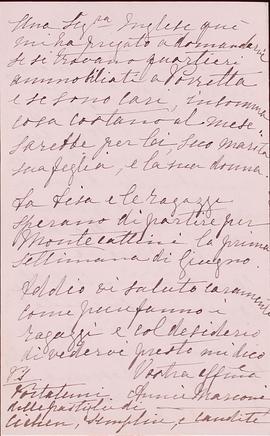 Una Sig.ra Inglese qui
mi ha pregato a domandarvi
se si trovano quartieri
ammobiliati a Porretta
e se sono cari, insomma
cosa costano al mese
sarebbe per lei, suo marito
sua figlia, e la sua donna.
La Lisa e le ragazze
sperano di partire per
Montecattini la prima
settimana di Giugno.
Addio vi saluto caramente
come pure fanno i
ragazzi e col desiderio
di vedervi presto mi dico
Vostra affma
Annie Marconi
PS
Portatemi
delle pastiglie di
semplici, e candite